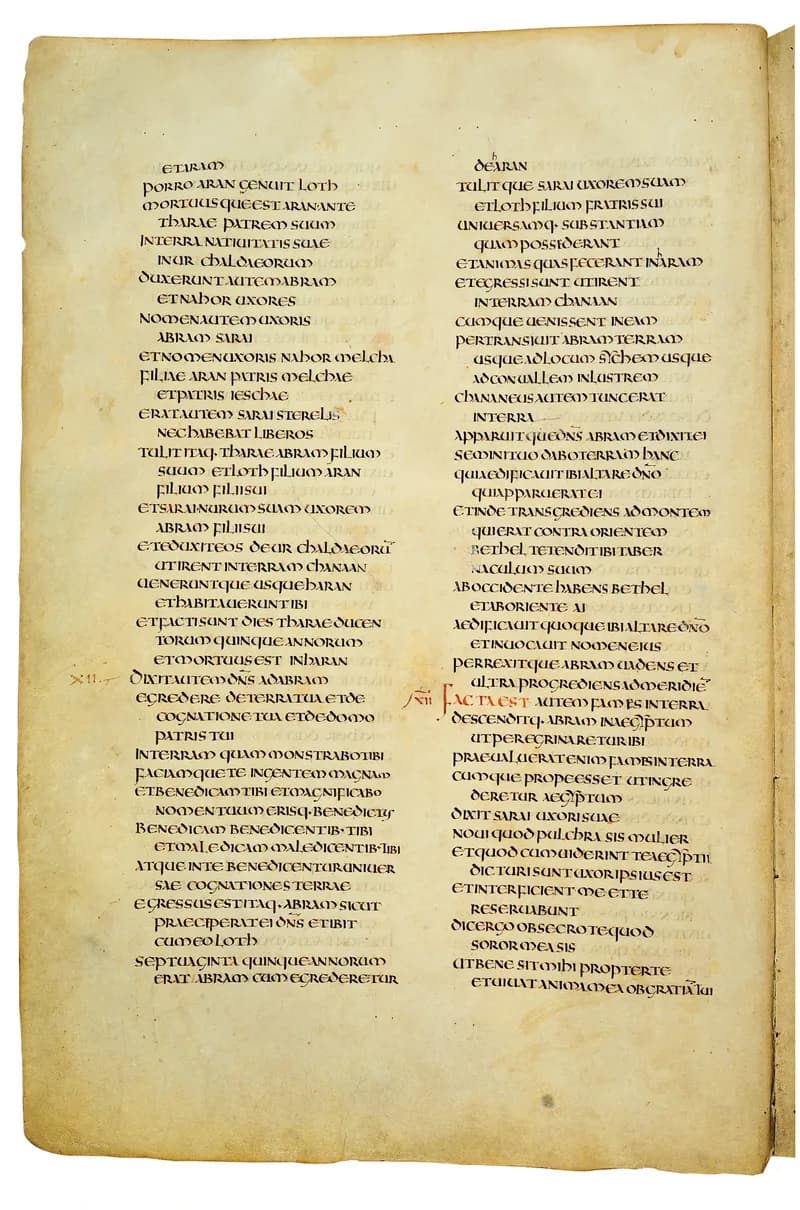 ETARAM
PORRO ARAN GENUIT LOTH
MORTUUSQUE EST ARAN ANTE
THARAE PATREM SUUM
IN TERRA NATIUITATIS SUAE
IN UR CHALDAEORUM
DUXERUNT AUTEM ABRAM
ET NAHOR UXORES
NOMEN AUTEM UXORIS
ABRAM SARAI
ET NOMEN UXORIS NAHOR MELCHA
FILIAE ARAN PATRIS MELCHAE
ET PATRIS IESCHAE
ERAT AUTEM SARAI STERELIS
NEC HABEBAT LIBEROS
TULIT ITAQ· THARAE ABRAM FILIUM
SUUM ET LOTH FILIUM ARAN
FILIUM FILII SUI
ET SARAI NURUM SUAM UXOREM
ABRAM FILII SUI
ET EDUXIT EOS DE UR CHALDAEORŪ
UT IRENT IN TERRAM CHANAAN
UENERUNTQUE USQUE HARAN
ET HABITAUERUNT IBI
ET FACTI SUNT DIES THARAE DUCEN
TORUM QUINQUE ANNORUM
ET MORTUUS EST IN HARAN
XII. DIXIT AUTEM DN̄S AD ABRAM
EGREDERE DE TERRA TUA ET DE
COGNATIONE TUA ET DE DOMO
PATRIS TUI
IN TERRAM QUAM MONSTRABO TIBI
FACIAMQUE TE IN GENTEM MAGNAM
ET BENEDICAM TIBI ET MAGNIFICABO
NOMEN TUUM ERISQ· BENEDICTUS
BENEDICAM BENEDICENTIB· TIBI
ET MALEDICAM MALEDICENTIB· TIBI
ATQUE IN TE BENEDICENTUR UNIUER
SAE COGNATIONES TERRAE
EGRESSUS EST ITAQ· ABRAM SICUT
PRAECIPERAT EI DN̄S ET IBIT
CUM EO LOTH
SEPTUAGINTA QUINQUE ANNORUM
ERAT ABRAM CUM EGREDERETUR
DE hARAN
TULITQUE SARAI UXOREM SUAM
ET LOTH FILIUM FRATRIS SUI
UNIUERSAMQ· SUBSTANTIAM
QUAM POSSIDERANT
ET ANIMAS QUAS FECERANT IN hARAM
ET EGRESSI SUNT UT IRENT
IN TERRAM CHANAAN
CUMQUE UENISSENT IN EAM
PERTRANSIUIT ABRAM TERRAM
USQUE AD LOCUM SYCHEM USQUE
AD CONUALLEM INLUSTREM
CHANANEUS AUTEM TUNC ERAT
IN TERRA
APPARUITQUE DN̄S ABRAM ET DIXIT EI
SEMINI TUO DABO TERRAM HANC
QUI AEDIFICAUIT IBI ALTARE DN̄O
QUI APPARUERAT EI
ET INDE TRANSGREDIENS AD MONTEM
QUI ERAT CONTRA ORIENTEM
BETHEL TETENDIT IBI TABER
NACULUM SUUM
AB OCCIDENTE HABENS BETHEL
ET AB ORIENTE AI
AEDIFICAUIT QUOQUE IBI ALTARE DN̄O
ET INUOCAUIT NOMEN EIUS
PERREXITQUE ABRAM UADENS ET
ULTRA PROGREDIENS AD MERIDIĒ
XIII FACTA EST AUTEM FAMES IN TERRA
DESCENDITQ· ABRAM IN AEGYPTUM
UT PEREGRINARETUR IBI
PRAEUALUERAT ENIM FAMIS IN TERRA
CUMQUE PROPE ESSET UT INGRE
DERETUR AEGYPTUM
DIXIT SARAI UXORI SUAE
NOUI QUOD PULCHRA SIS MULIER
ET QUOD CUM UIDERINT TE AEGYPTII
DICTURI SUNT UXOR IPSIUS EST
ET INTERFICIENT ME ET TE
RESERUABUNT
DIC ERGO OBSECRO TE QUOD
SOROR MEA SIS
UT BENE SIT MIHI PROPTER TE
ET UIUAT ANIMA MEA OB GRATIĀ TUI